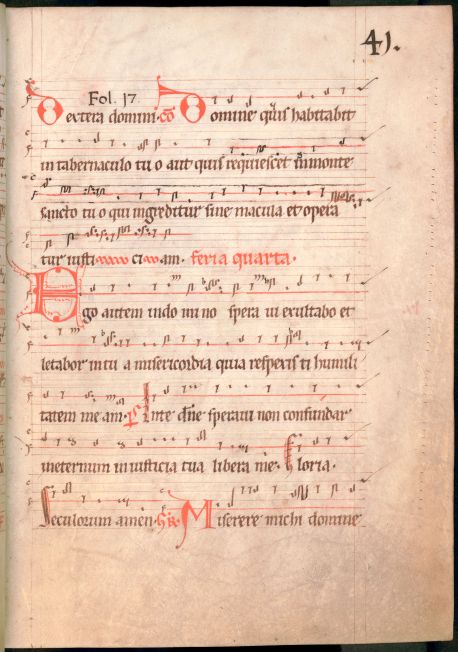 41.
Fol. 17
Dextera domini. c̄o Domine quis habitabit
in tabernaculo tuo aut quis requiescet in monte
sancto tuo qui ingreditur sine macula et opera
tur iusti ciam. feria quarta.
Ego autem in do mino spera ui exultabo et
letabor in tua misericordia quia respexisti humili
tatem meam. Ps In te dn̄e speraui non confundar
ineternum iniusticia tua libera me. Gloria.
Seculorum amen. Gr̄. Miserere michi domine